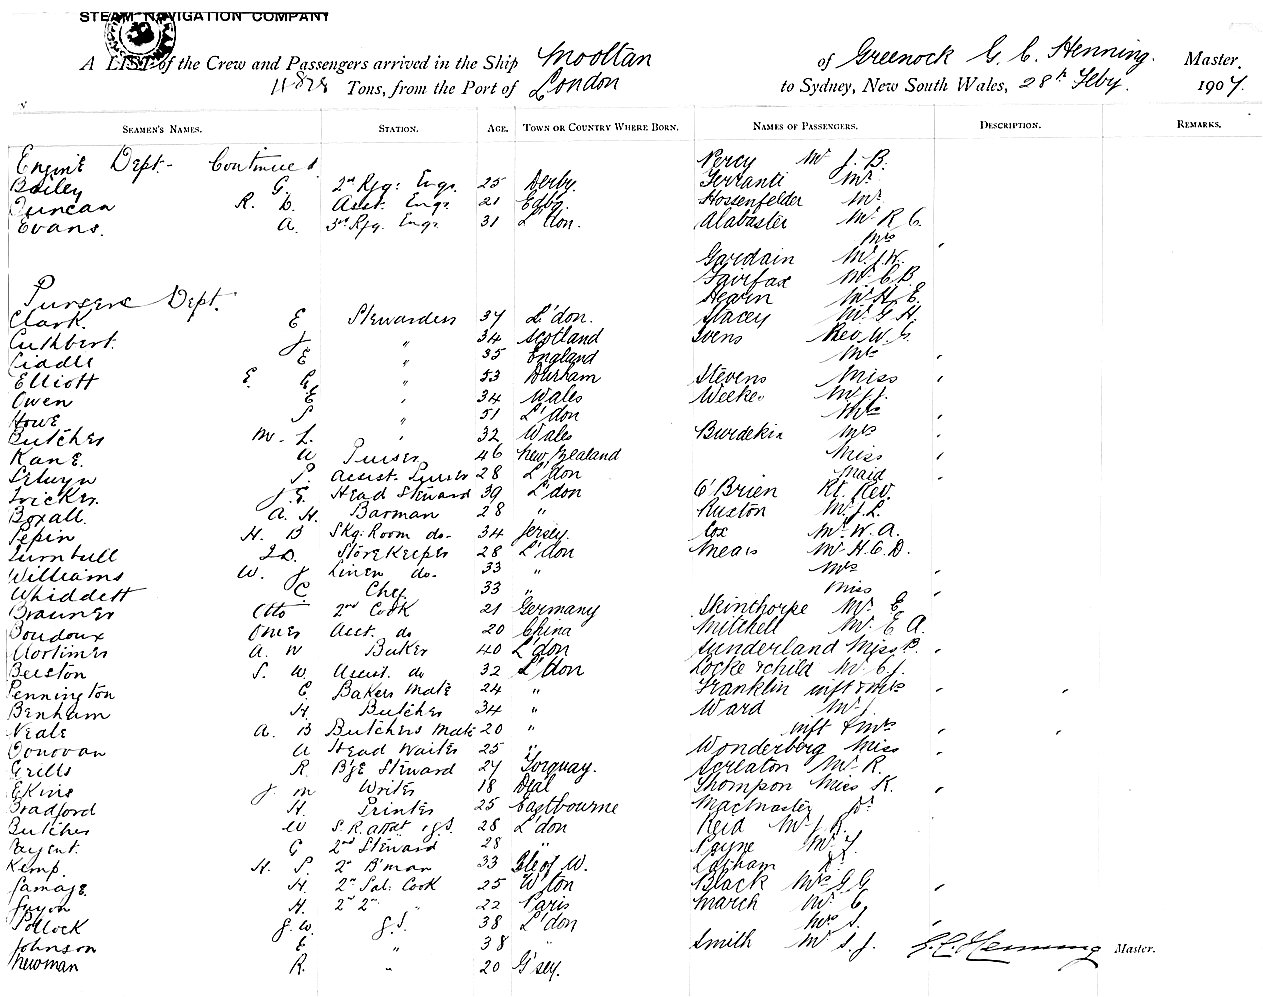 STEAM NAVIGATION COMPANY
A LIST of the Crew and Passengers arrived in the Ship Mooltan of Greenock G. C. Henning. Master.
Tons, from the Port of London to Sydney, New South Wales, 28th Feby. 1907.
SEAMEN'S NAMES. STATION. AGE. TOWN OR COUNTRY WHERE BORN. NAMES OF PASSENGERS. DESCRIPTION. REMARKS.
Engine Dept- Continued. Percy Mr J. B.
Bailey G. 2nd Rfg: Engr 25 Derby. Ferranti Mr
Duncan R. D. Asst. Engr 21 Edbg. Hossenfelder Mr
Evans. A. 3rd Rfg. Engr 31 L'don. Alabaster Mr R C.
Mrs "
Gardain Mr J.W.
Fairfax Mr C B
Pursers Dept. Hearn Mr H. E.
Clark. E Stewardess 37 L'don. Stacey Mr G H.
Cuthbert. J " 34 Scotland Ivens Rev W. G.
Ciddle E " 35 England Mrs "
Elliott E. G. " 53 Durham Stevens Miss "
Owen E " 34 Wales Weekes Mr J.
Howe S " 51 L'don Mrs "
Butcher M. L. " 32 Wales Burdekin Mrs "
Kane. W Purser 46 New Zealand Miss "
Selwyn P. Assist. Purser 28 L'don Maid "
Tricker. J. G. Head Steward 39 L'don O'Brien Rt. Rev.
Boxall. A. H. Barman 28 " Ruxton Mr J. L.
Pepin H. B Skg: Room do- 34 Jersey. Cox Mr W. A.
Turnbull J D. Storekeeper 28 L'don Mears Mr H. C. D.
Williams W. J. Linen do. 33 " Mrs "
Whiddett C. Chef 33 " Miss "
Brauner Otto 2nd Cook 21 Germany Skinthorpe Mr E.
Boudoux Omer Asst. do 20 China Mitchell Mr E A.
Mortimer A. W Baker 40 L'don Sunderland Miss B. "
Beeston S. W. Assist. do 32 L'don Locke & child Mr C. J.
Pennington C. Bakers Mate 24 " Franklin inft & Mrs " "
Benham H. Butcher 34 " Ward Mr J.
Neale A. B Butchers Mate 20 " inft & Mrs " "
Donovan A Head Waiter 25 " Wonderberg Miss "
Grills R. B'ge Steward 27 Torquay. Screaton Mr R.
Ekins J. M Writer 18 Deal Thompson Miss K. "
Bradford H. Printer 25 Eastbourne MacMaster Dr
Butcher W 28 L'don Reid Mr J. R.
G 2nd Steward 28 " Payne Mr
Kemp. H. S. 2nd B'man 33 Isle of W. Latham
Ramage H. 2nd Sal. Cook 25 W'ton Black Mrs G. G "
Guyon H. 2nd 2nd " 22 Paris March Mr C.
Pollock J. W. G. S. 38 L'don Mrs S. "
Johnson E " 38 " Smith Mr S. J. G. C. Henning Master.
Newman R. " 20 G'sey.